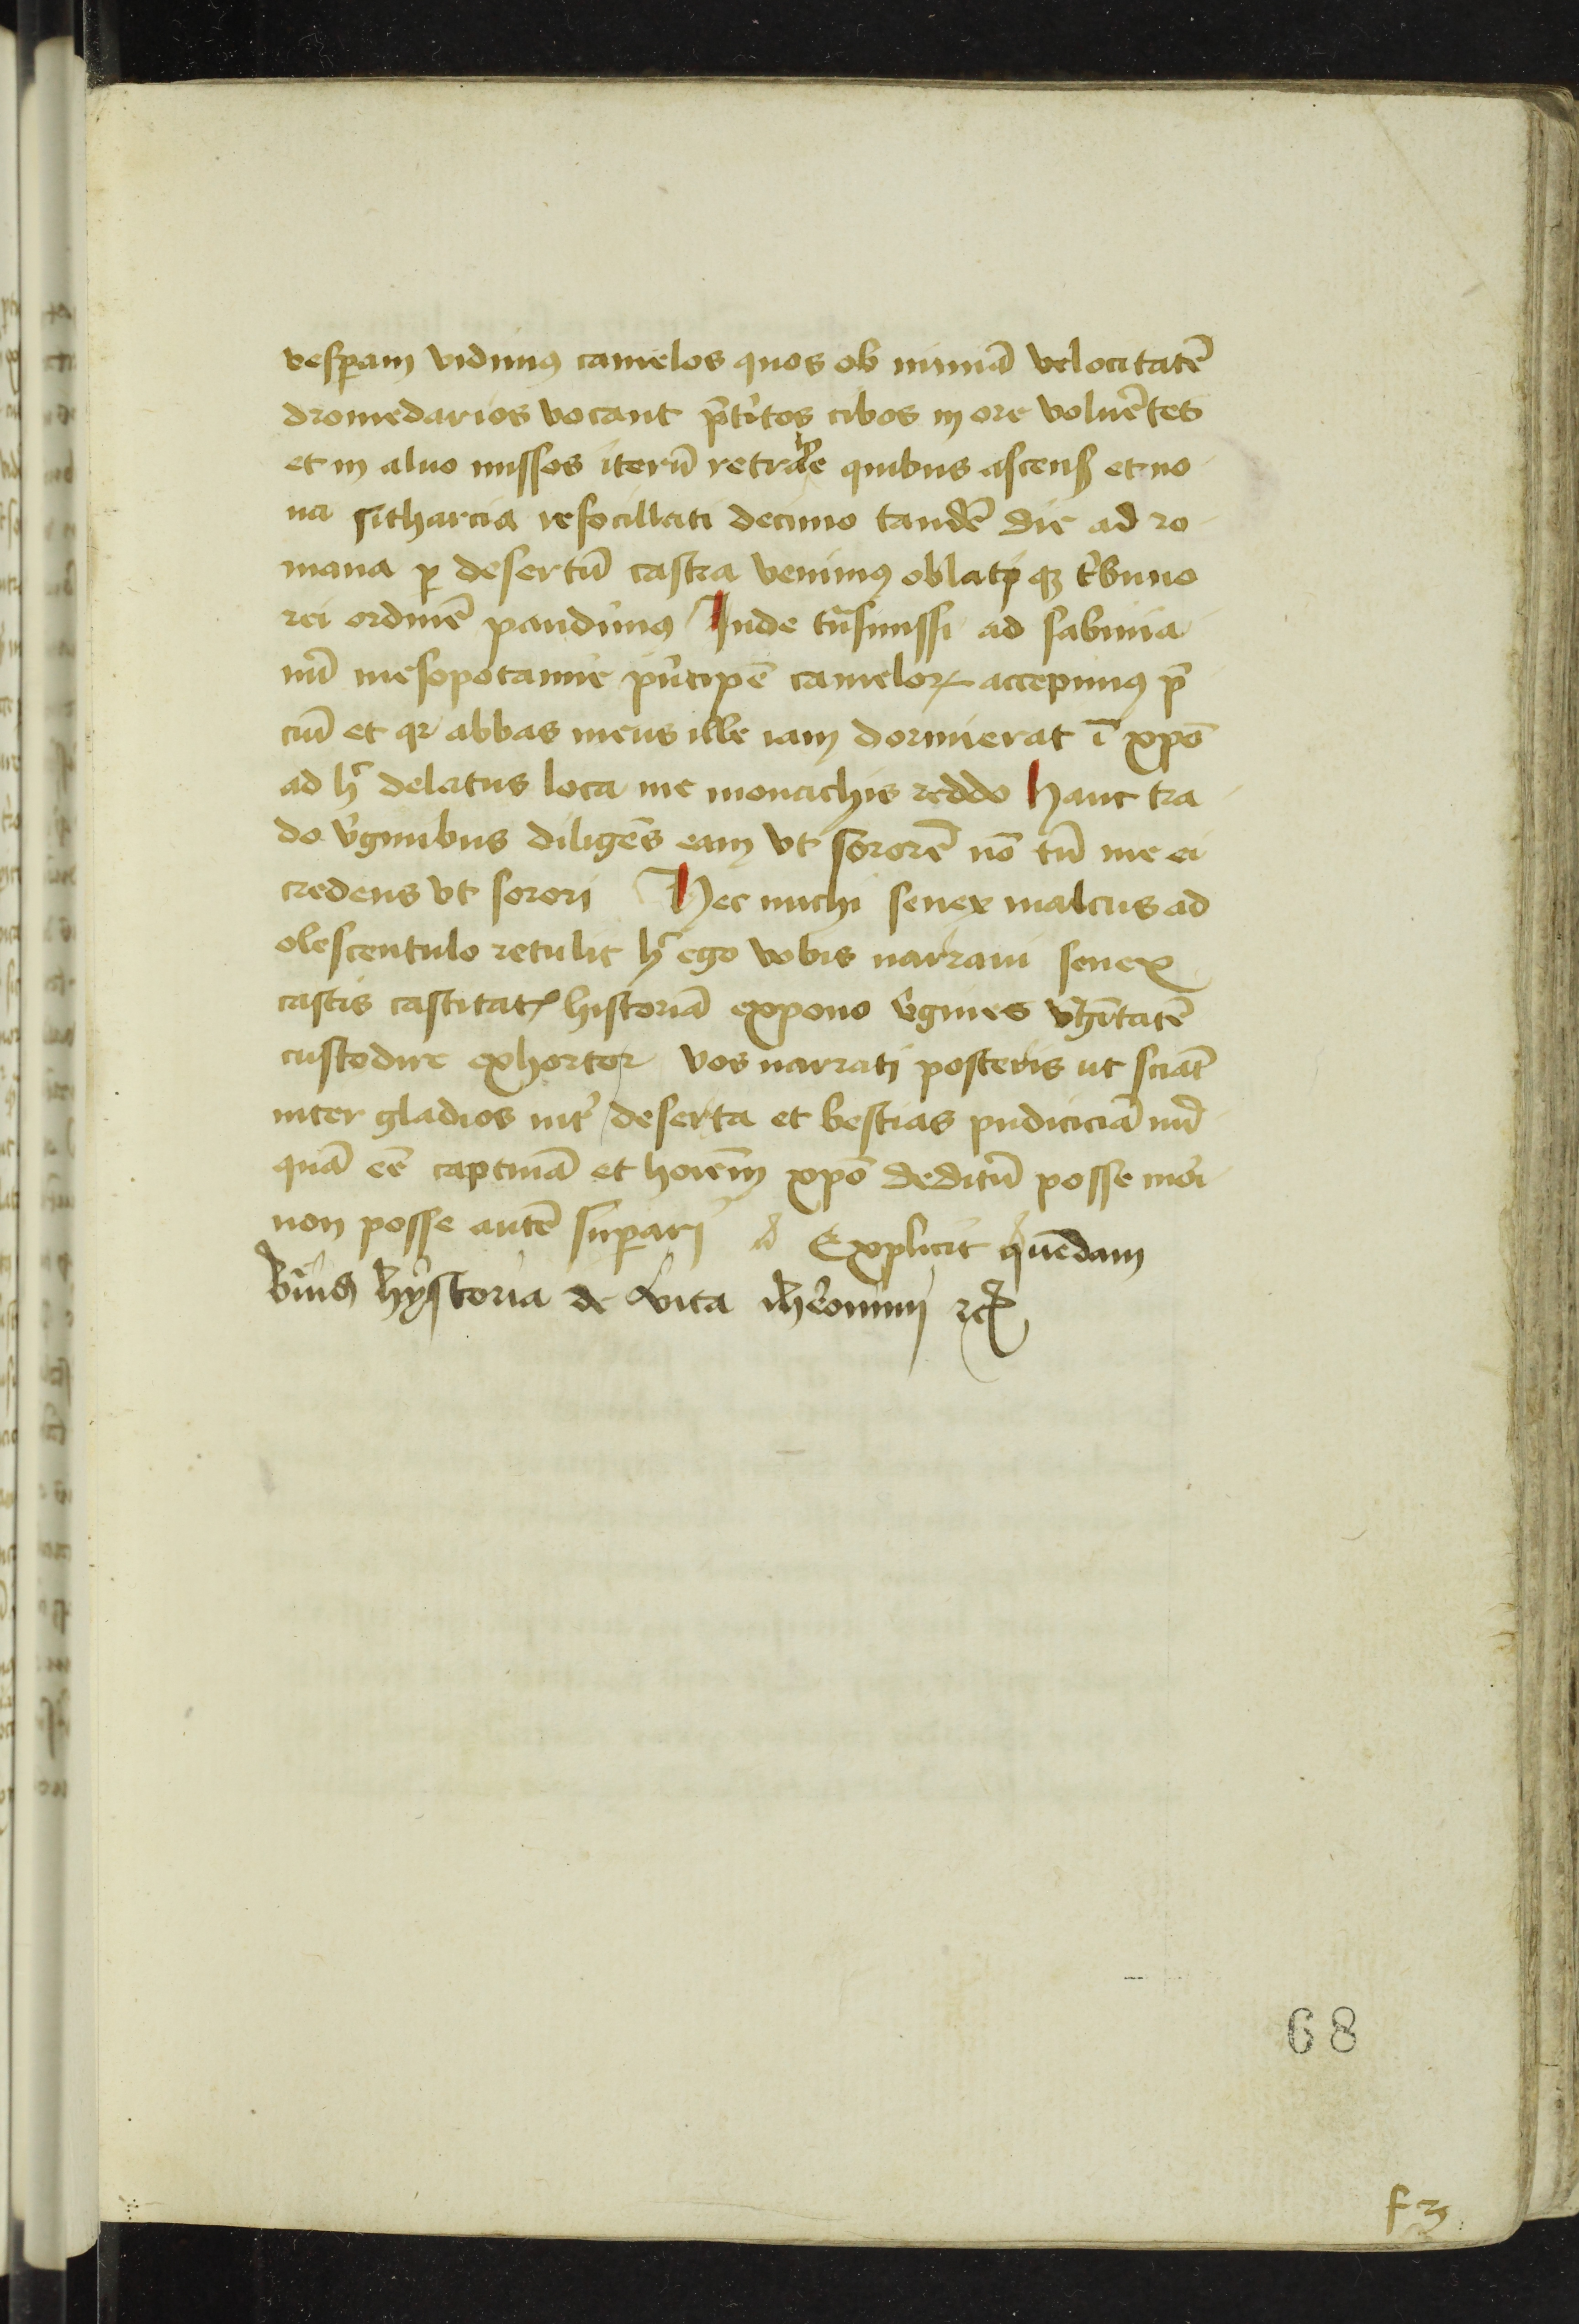 vesꝑam vidimꝰ camelos quos ob nimiā velocitatē
dromedarios vocant p̄titos cibos in ore voluētes
et in aluo missos iterū retrahe quibus ascensꝭ et no
ua sitharcia refocillati decimo tandē die ad ro
mana ꝑ desertū castra venimꝰ oblati qꝫ tͥbuno
rei ordinē pandimꝰ Inde tn̄smissi ad sabinia
nū mesopotamie pͥncipē cameloꝝ accepimꝰ p̄
ciū et qꝛ abbas meus ille iam dormierat ī xp̄o
ad hͨ delatus loca me monachis reddo hanc tra
do v̓ginibus diligēs eam vt sororē nō tn̄ me ei
credens vt sorori Hec michi senex malcus ad
olescentulo retulit hͨ ego vobis narraui senex
castis castitatꝭ historiā expono v̓gines v̓gītatē
custodire exhortor vos narrati posteris ut sciāt
inter gladios int̓ deserta et bestias pudiciciā nū
quā eē captiuā et hoiēm xp̄o deditū posse mori
non posse autē suꝑari Explicit quēdam
breuis hystoria de vita iheronimi ⁊cꝭ
68
f 3